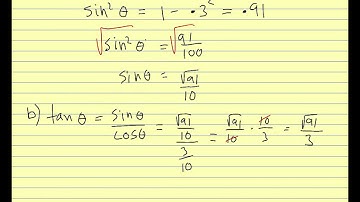 sin²θ = 1 - .3² = .91
√sin²θ = √91/100
sinθ = √91/10
b) tanθ = sinθ/cosθ = √91/10 / 3/10 = √91/10 · 10/3 = √91/3